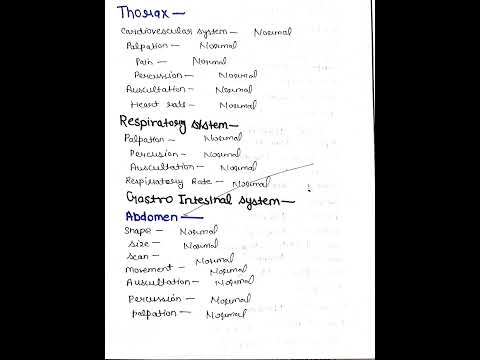 Thorax —
Cardiovescular system — Normal
Palpation — Normal
Pain — Normal
Percussion — Normal
Auscultation — Normal
Heart rate — Normal
Respiratory system —
Palpation — Normal
Percusion — Normal
Auscultation — Normal
Respiratory Rate — Normal
Gastro Intesinal system —
Abdomen —
Shape — Normal
size — Normal
scan — Normal
movement — Normal
Auscultation — Normal
Percussion — Normal
palpation — Normal